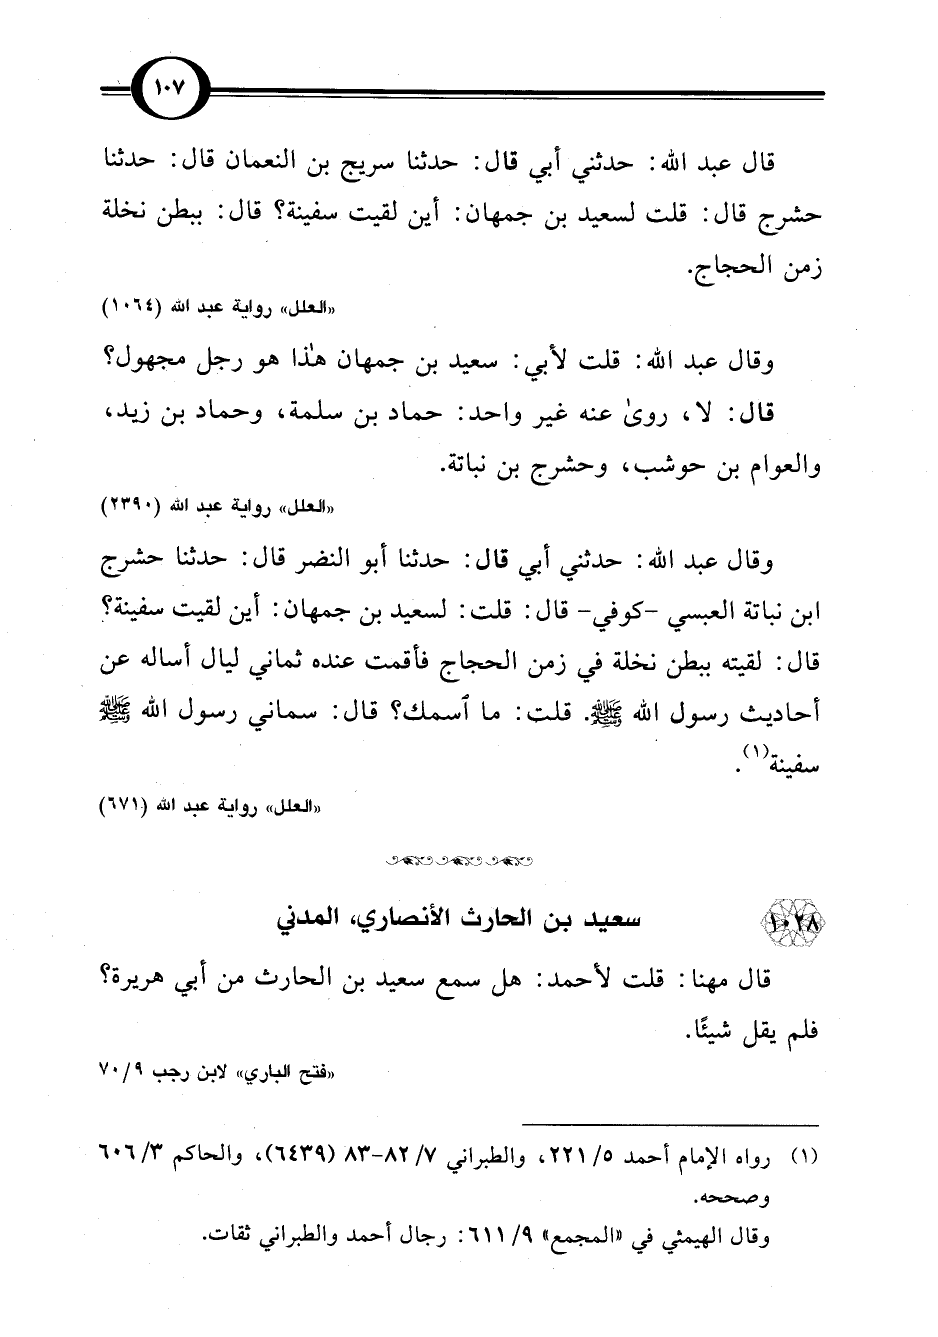 ١٠٧
قال عبد الله: حدثني أبي قال: حدثنا سريج بن النعمان قال: حدثنا
حشرج قال: قلت لسعيد بن جمهان: أين لقيت سفينة؟ قال: ببطن نخلة
زمن الحجاج.
«العلل» رواية عبد الله (١٠٦٤)
وقال عبد الله: قلت لأبي: سعيد بن جمهان هذا هو رجل مجهول؟
قال: لا، روىٰ عنه غير واحد: حماد بن سلمة، وحماد بن زيد،
والعوام بن حوشب، وحشرج بن نباتة.
«العلل» رواية عبد الله (٢٣٩٠)
وقال عبد الله: حدثني أبي قال: حدثنا أبو النضر قال: حدثنا حشرج
ابن نباتة العبسي -كوفي- قال: قلت: لسعيد بن جمهان: أين لقيت سفينة؟
قال: لقيته ببطن نخلة في زمن الحجاج فأقمت عنده ثماني ليال أساله عن
أحاديث رسول الله ﷺ. قلت: ما ٱسمك؟ قال: سماني رسول الله ﷺ
سفينة(١).
«العلل» رواية عبد الله (٦٧١)
١٠٢٨ سعيد بن الحارث الأنصاري، المدني
قال مهنا: قلت لأحمد: هل سمع سعيد بن الحارث من أبي هريرة؟
فلم يقل شيئًا.
«فتح الباري» لابن رجب ٩/ ٧٠
(١) رواه الإمام أحمد ٥/ ٢٢١، والطبراني ٧/ ٨٢-٨٣ (٦٤٣٩)، والحاكم ٣/ ٦٠٦
وصححه.
وقال الهيثمي في «المجمع» ٩/ ٦١١: رجال أحمد والطبراني ثقات.